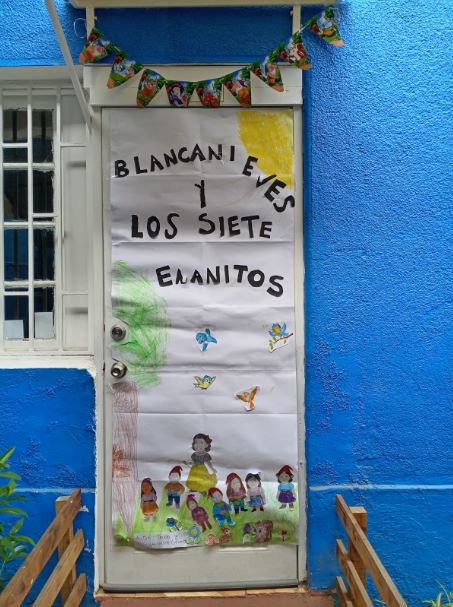 BLANCANIEVES
Y
LOS SIETE
ENANITOS